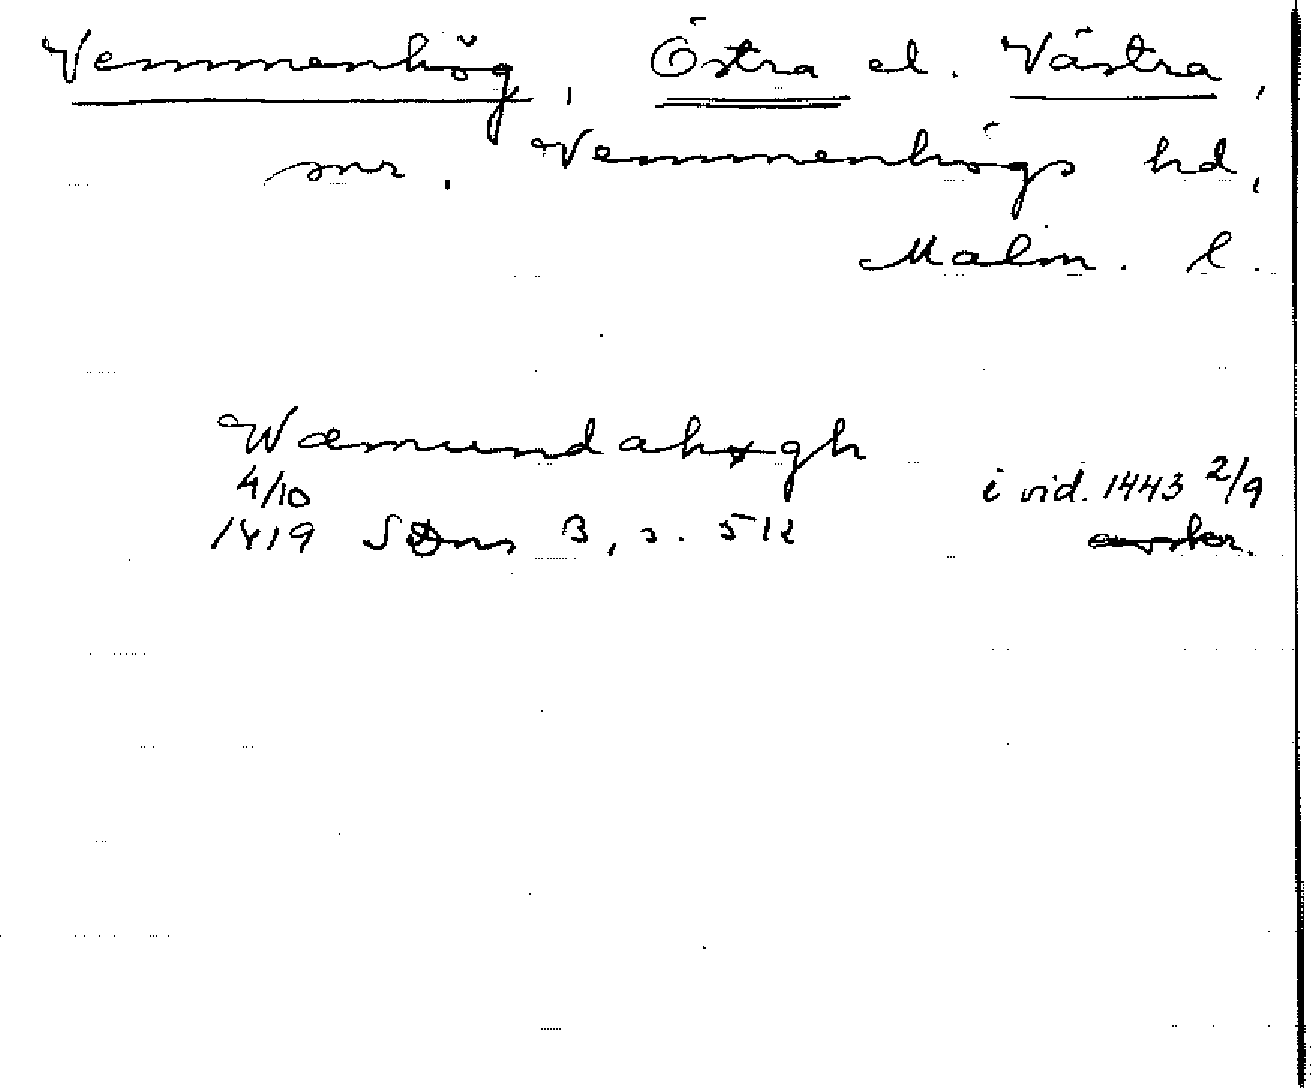 Vemmenhög, Östra el. Västra,
snr. Vemmenhögs hd,
Malm. l.
Wæmundahøgh
4/10 i vid. 1443 2/9
1419 SDns 3, s. 512 avskr.